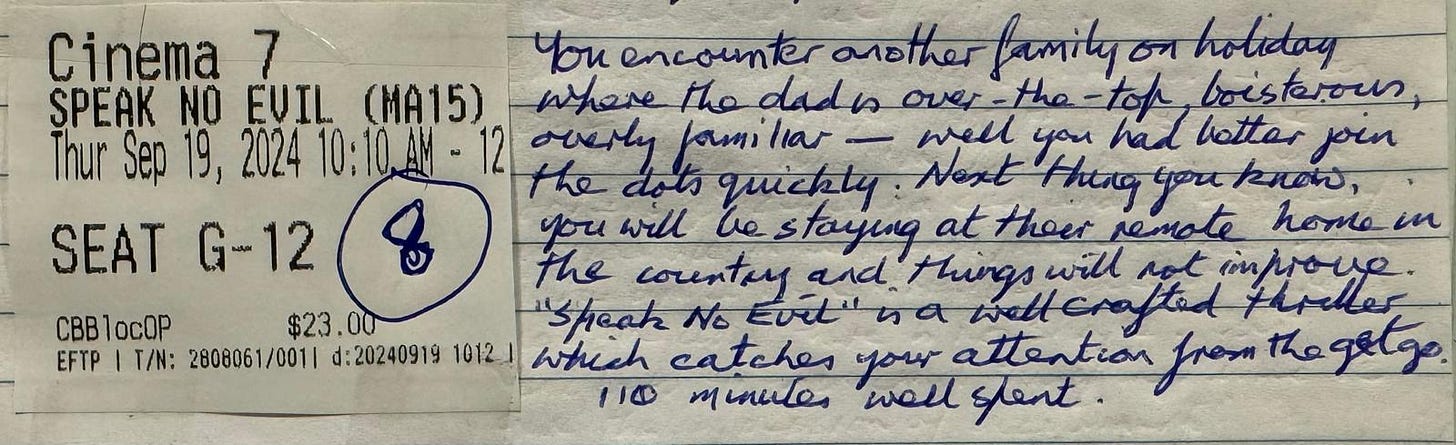 Cinema 7
SPEAK NO EVIL (MA15)
Thur Sep 19, 2024 10:10 AM - 12
SEAT G-12
8
CBBlocOP $23.00
EFTP | T/N: 2808061/001| d:20240919 1012 |
You encounter another family on holiday
where the dad is over-the-top, boisterous,
overly familiar — well you had better join
the dots quickly. Next thing you know,
you will be staying at their remote home in
the country and things will not improve.
"Speak No Evil" is a well crafted thriller
which catches your attention from the get go.
110 minutes well spent.